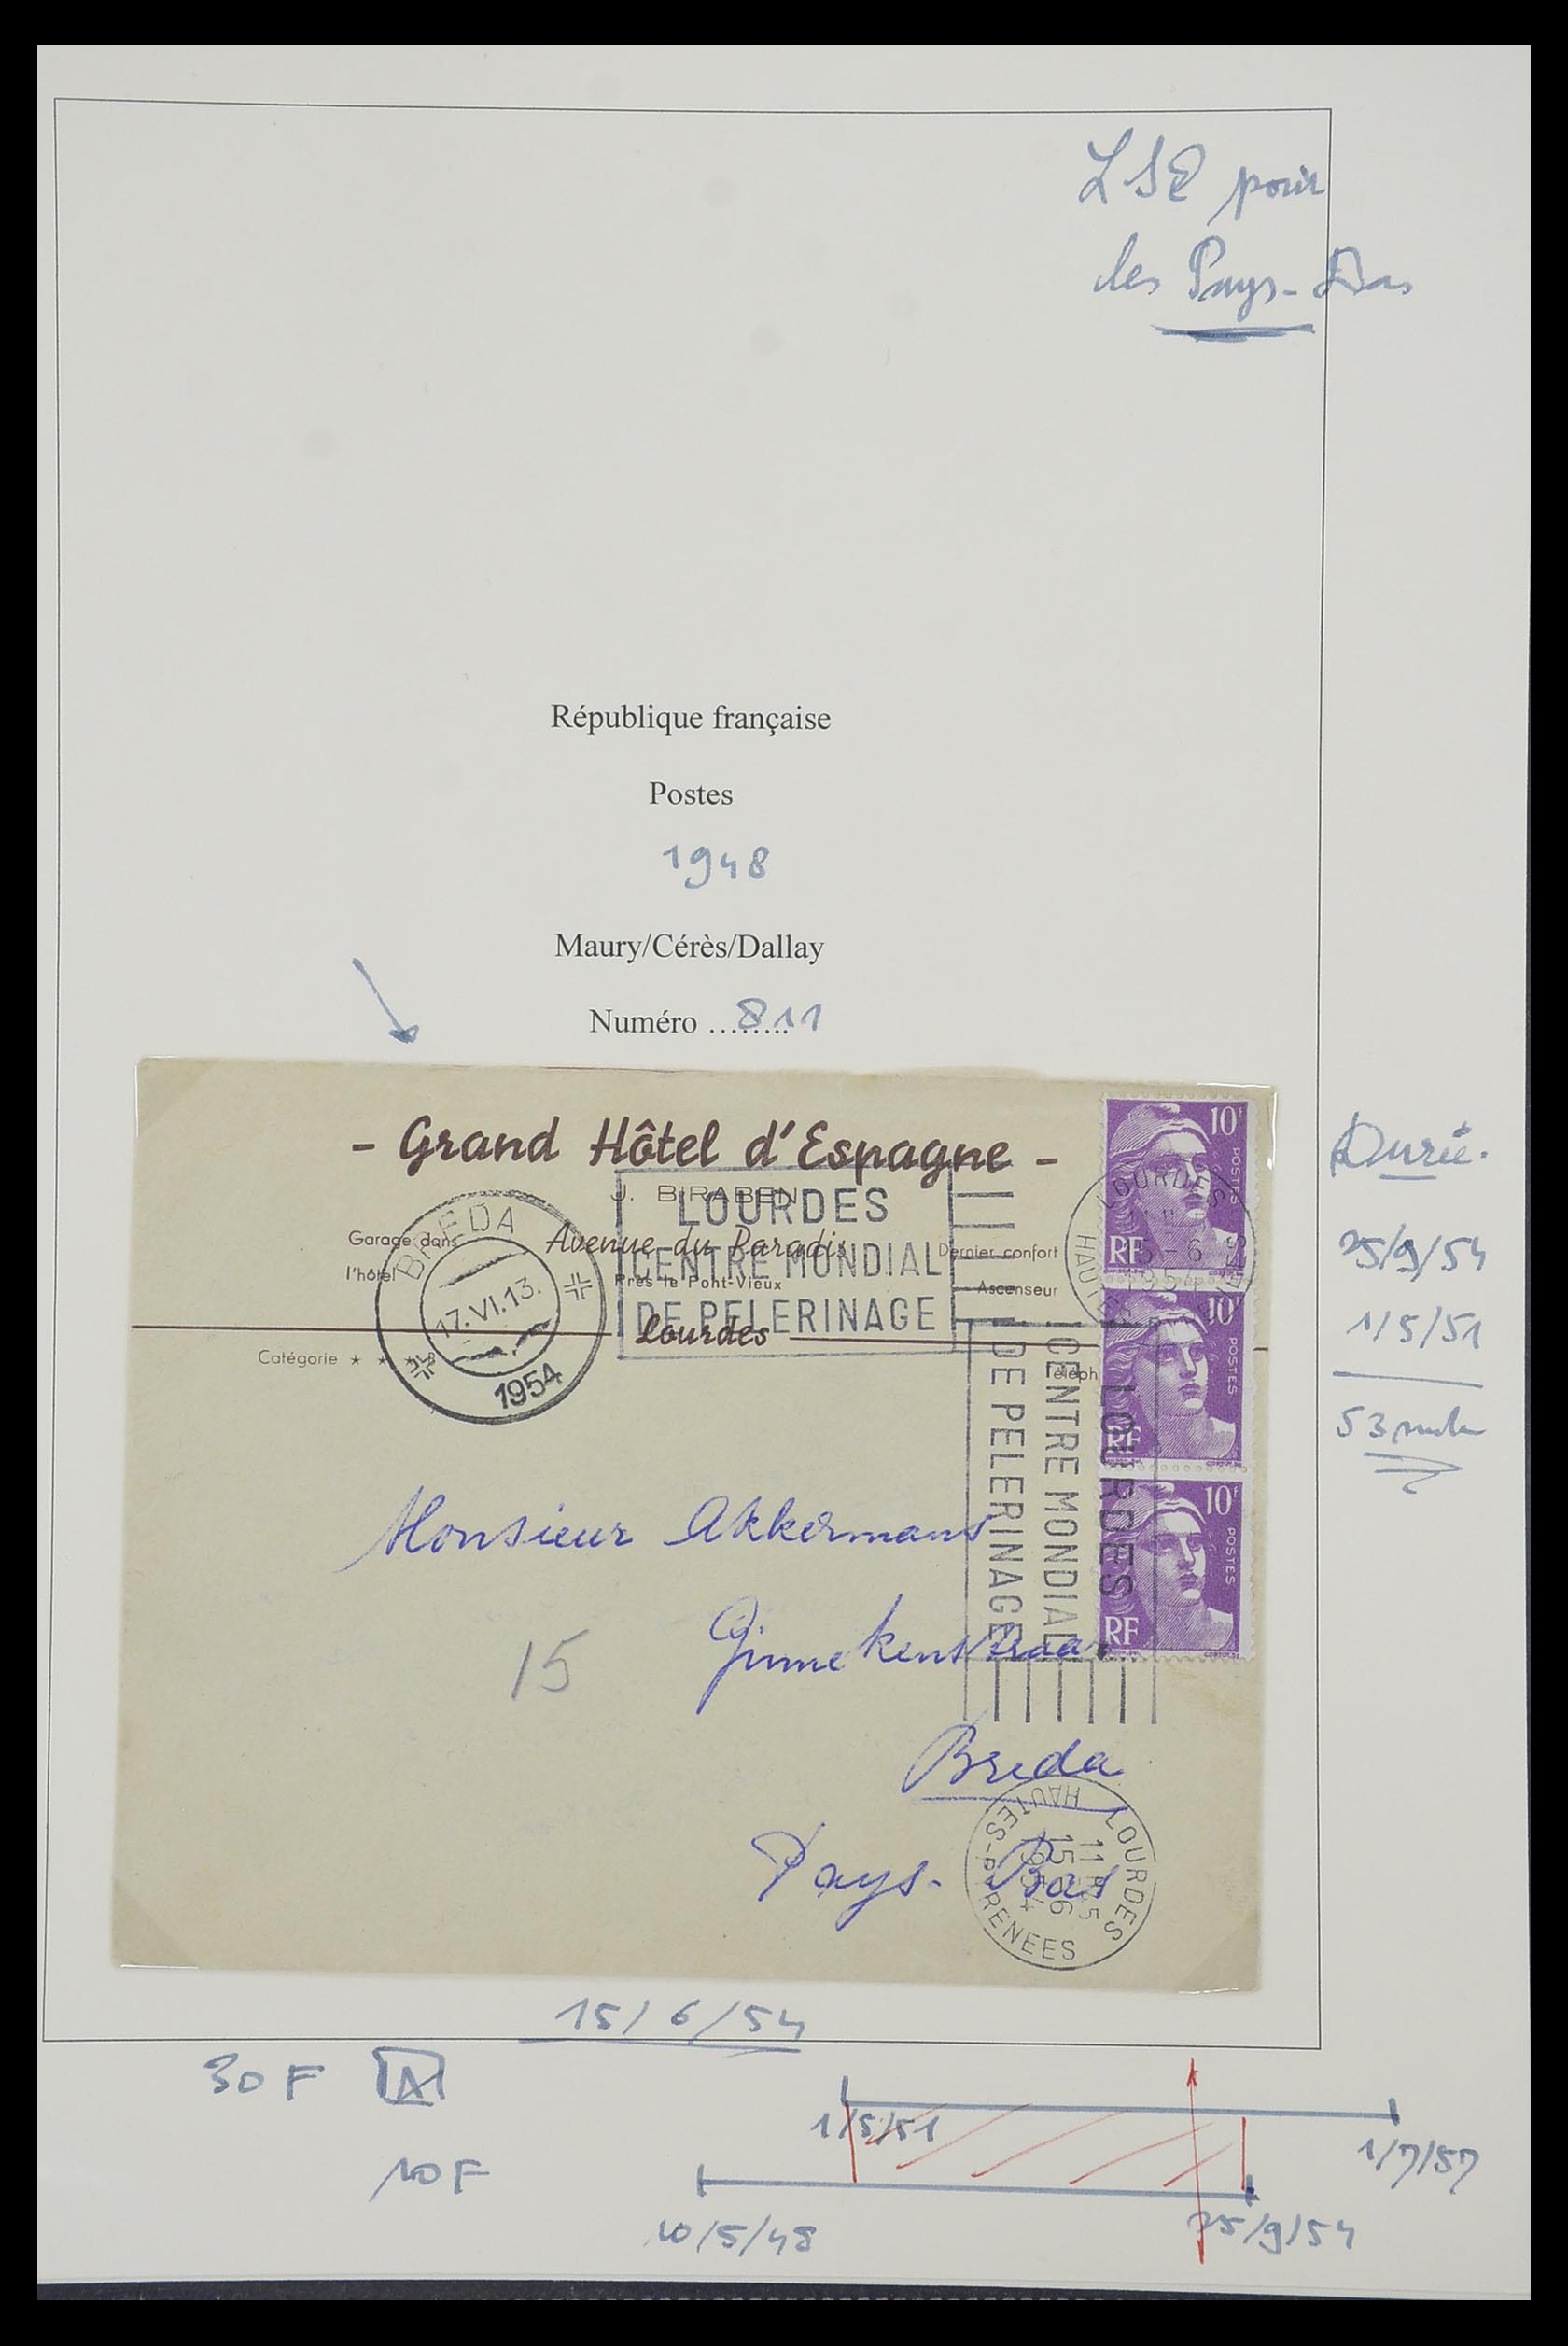 LSE pour
les Pays-Bas
République française
Postes
1948
Maury/Cérès/Dallay
Numéro ........ 811
- Grand Hôtel d'Espagne -
J. BIRABEN
Garage dans
l'hôtel
Avenue du Paradis
Près le Pont-Vieux
Lourdes
Dernier confort
Ascenseur
Catégorie ★ ★ ★ B
Téléph
BREDA
17.VI.13.
1954
LOURDES
CENTRE MONDIAL
DE PELERINAGE
LOURDES
HAUTES
15-6
1954
10F
POSTES
RF
10F
POSTES
RF
10F
POSTES
RF
LOURDES
CENTRE MONDIAL
DE PELERINAGE
Monsieur Akkermans
Ginnekenstraat
15
Breda
Pays-Bas
LOURDES
HAUTES-PYRENEES
15 6
1954
Durée.
25/9/54
1/5/51
53
15/6/54
30 F A
1/5/51
1/7/57
10 F
10/5/48
25/9/54